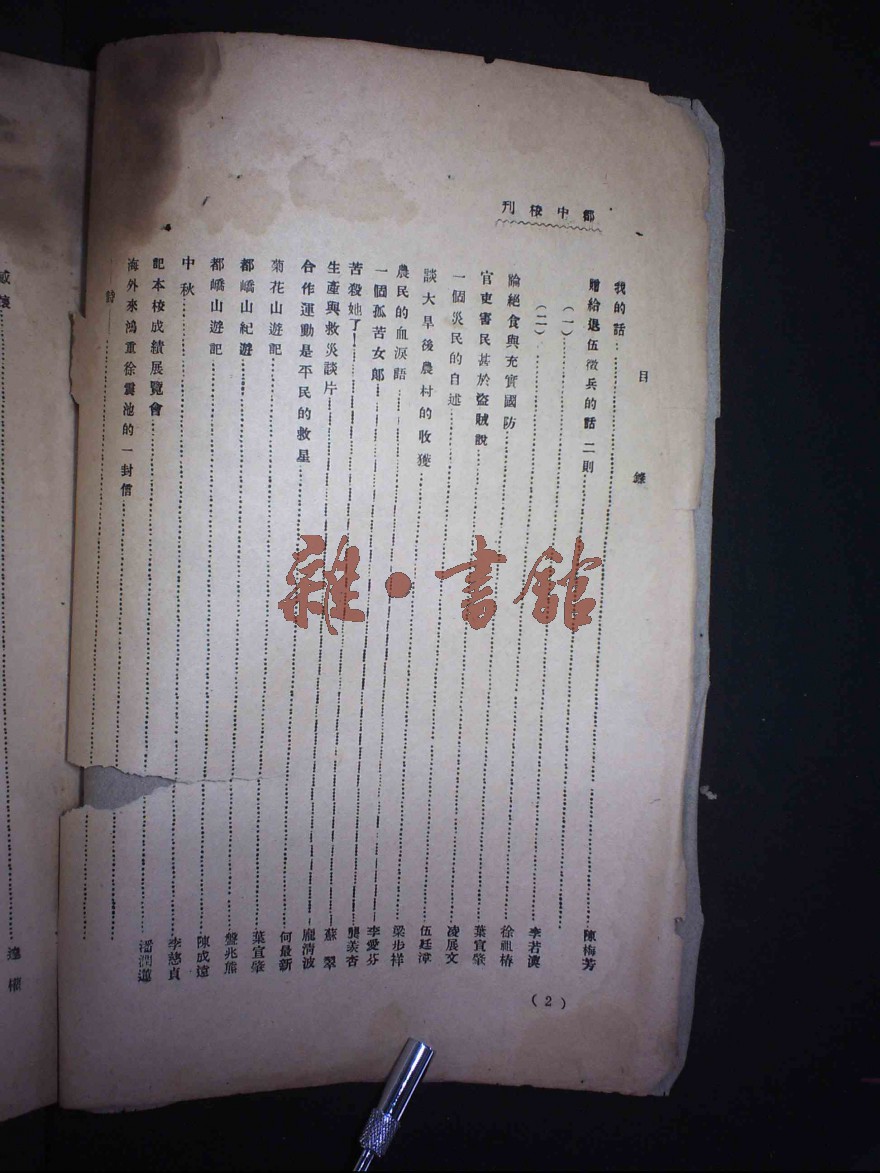 都中校刊
目錄
我的話
贈給退伍徵兵的話二則
(一) 陳梅芳
(二) 李若澳
論絕食與充實國防 徐祖椿
官吏害民甚於盜賊說 葉宣肇
一個災民的自述 凌展文
談大旱後農村的收獲 伍廷漳
農民的血淚語 梁步祥
一個孤苦女郎 李愛芬
苦殺她了！ 龔羨杏
生產與救災談片 蘇翠
合作運動是平民的救星 龐清波
菊花山遊記 何最新
都嶠山紀遊 葉宣肇
都嶠山遊記 盤兆熊
中秋 陳成遠
記本校成績展覽會 李慈貞
海外來鴻重徐震池的一封信 潘潤蓮
(2)
雜·書館